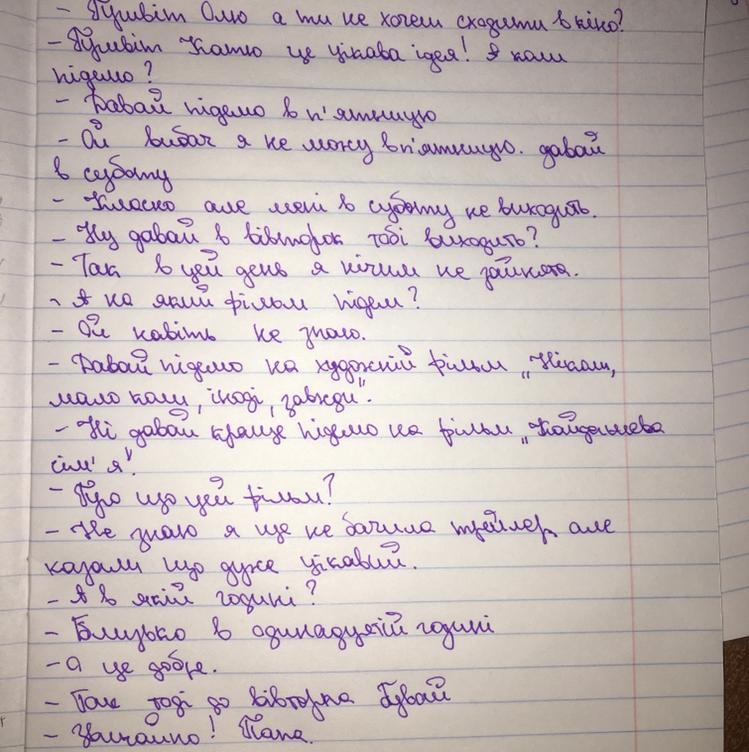 - Привіт Олю а ти не хочеш сходити в кіно?
- Привіт Катю це цікава ідея! А коли
підемо?
- Давай підемо в п'ятницю
- Ой вибач я не можу в п'ятницю. давай
в суботу
- Класно але мені в суботу не виходить.
- Ну давай в вівторок тобі виходить?
- Так в цей день я нічим не зайнята.
- А на який фільм підем?
- Ой навіть не знаю.
- Давай підемо на художній фільм „Ніколи,
мало коли, іноді, завжди".
- Ні давай краще підемо на фільм „Кайдашева
сім'я"
- Про що цей фільм?
- Не знаю я ще не бачила трейлер але
казали що дуже цікавий.
- А в якій годині?
- Близько в одинадцятій годині
- а це добре.
- Так тоді до вівторка Бувай
- Звичайно! Папа.